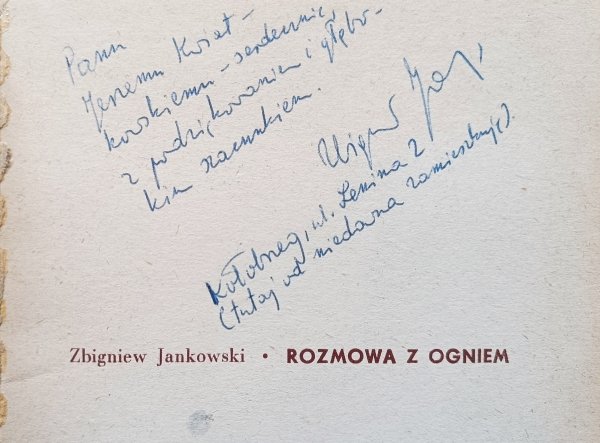 Panu
Jerzemu Kwiat-
kowskiemu – serdecznie,
z podziękowaniem i głębo-
kim szacunkiem.
Kołobrzeg, ul. Lenina 2
(tutaj od niedawna zamieszkuję).
Zbigniew Jankowski • ROZMOWA Z OGNIEM